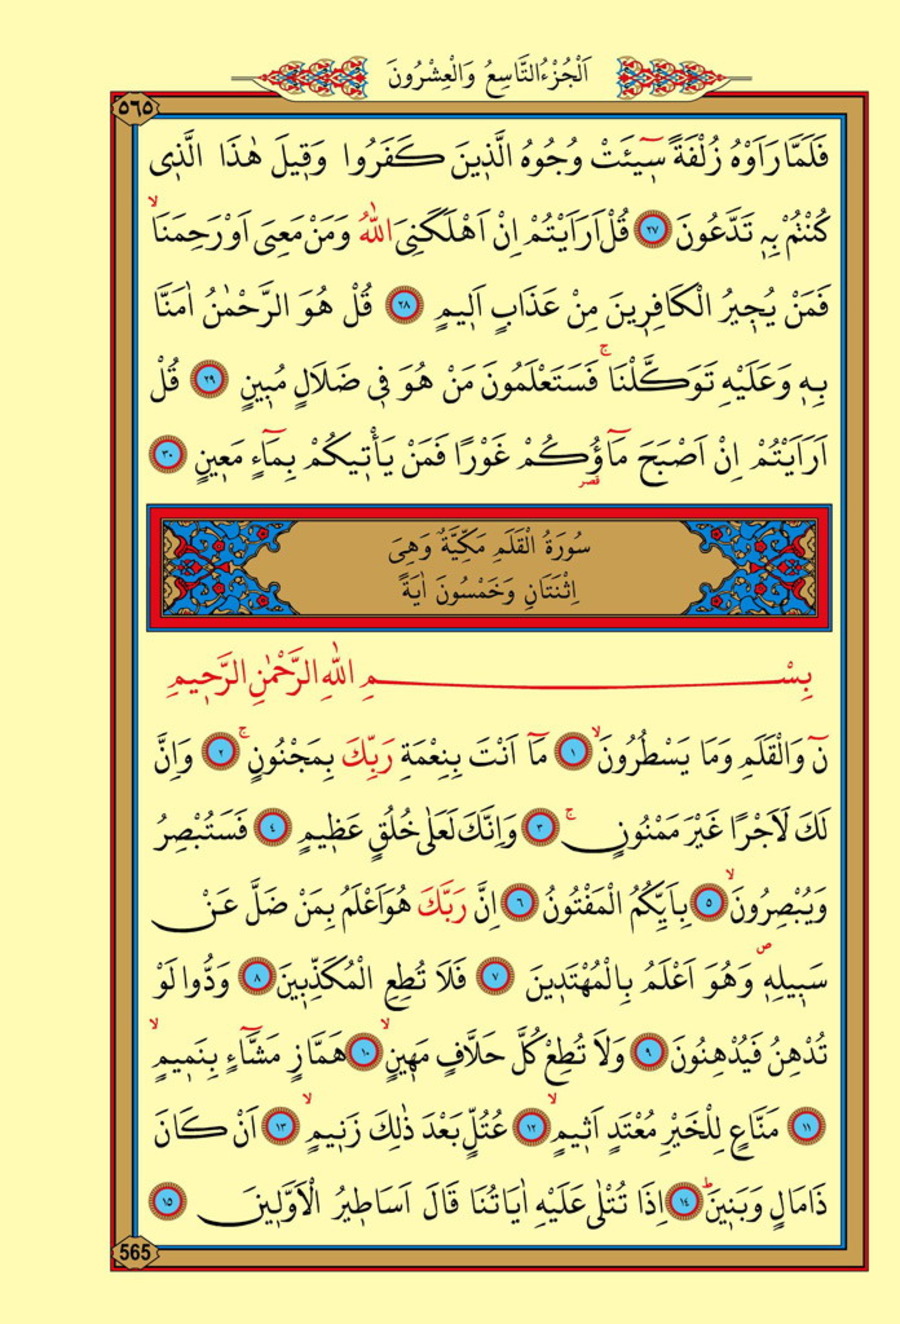 اَلْجُزْءُ التَّاسِعُ وَالْعِشْرُونَ
٥٦٥
فَلَمَّا رَاَوْهُ زُلْفَةً سٓيـَٔتْ وُجُوهُ الَّذ۪ينَ كَفَرُوا وَق۪يلَ هٰذَا الَّذ۪ى
كُنْتُمْ بِه۪ تَدَّعُونَ ٢٧ قُلْ اَرَاَيْتُمْ اِنْ اَهْلَكَنِىَ اللّٰهُ وَمَنْ مَعِىَ اَوْ رَحِمَنَاۙ
فَمَنْ يُج۪يرُ الْكَافِر۪ينَ مِنْ عَذَابٍ اَل۪يمٍ ٢٨ قُلْ هُوَ الرَّحْمٰنُ اٰمَنَّا
بِه۪ وَعَلَيْهِ تَوَكَّلْنَاۚ فَسَتَعْلَمُونَ مَنْ هُوَ ف۪ى ضَلَالٍ مُب۪ينٍ ٢٩ قُلْ
اَرَاَيْتُمْ اِنْ اَصْبَحَ مَٓاؤُ۬كُمْ غَوْرًا فَمَنْ يَأْت۪يكُمْ بِمَٓاءٍ مَع۪ينٍ ٣٠
قصر
سُورَةُ الْقَلَمِ مَكِّيَّةٌ وَهِىَ
اِثْنَتَانِ وَخَمْسُونَ اٰيَةً
بِسْمِ اللّٰهِ الرَّحْمٰنِ الرَّح۪يمِ
نٓ وَالْقَلَمِ وَمَا يَسْطُرُونَۙ ١ مَٓا اَنْتَ بِنِعْمَةِ رَبِّكَ بِمَجْنُونٍۚ ٢ وَاِنَّ
لَكَ لَاَجْرًا غَيْرَ مَمْنُونٍۚ ٣ وَاِنَّكَ لَعَلٰى خُلُقٍ عَظ۪يمٍ ٤ فَسَتُبْصِرُ
وَيُبْصِرُونَۙ ٥ بِاَيِّكُمُ الْمَفْتُونُ ٦ اِنَّ رَبَّكَ هُوَ اَعْلَمُ بِمَنْ ضَلَّ عَنْ
سَب۪يلِه۪ۖ وَهُوَ اَعْلَمُ بِالْمُهْتَد۪ينَ ٧ فَلَا تُطِعِ الْمُكَذِّب۪ينَ ٨ وَدُّوا لَوْ
تُدْهِنُ فَيُدْهِنُونَ ٩ وَلَا تُطِعْ كُلَّ حَلَّافٍ مَه۪ينٍۙ ١٠ هَمَّازٍ مَشَّٓاءٍ بِنَم۪يمٍۙ
١١ مَنَّاعٍ لِلْخَيْرِ مُعْتَدٍ اَث۪يمٍۙ ١٢ عُتُلٍّ بَعْدَ ذٰلِكَ زَن۪يمٍۙ ١٣ اَنْ كَانَ
ذَا مَالٍ وَبَن۪ينَۜ ١٤ اِذَا تُتْلٰى عَلَيْهِ اٰيَاتُنَا قَالَ اَسَاط۪يرُ الْاَوَّل۪ينَ ١٥
565